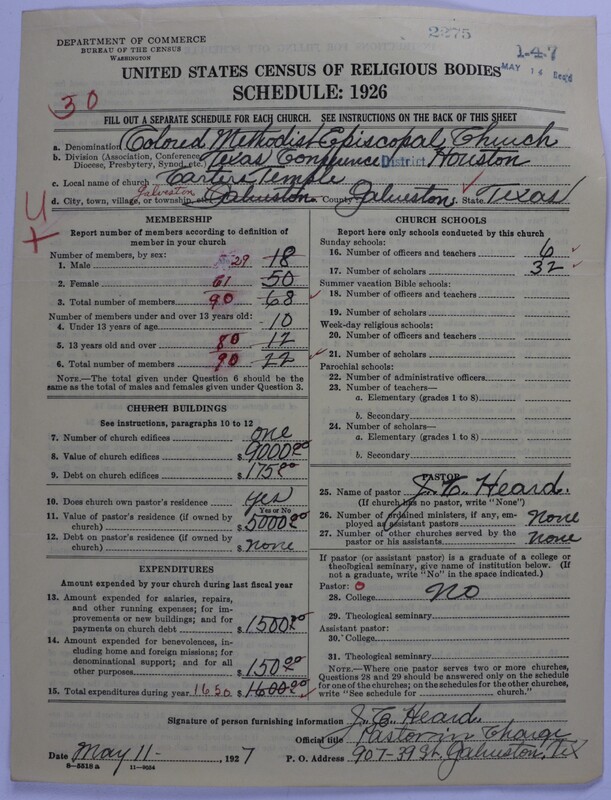 2275
DEPARTMENT OF COMMERCE
BUREAU OF THE CENSUS
WASHINGTON
147
MAY 14 Rec'd
UNITED STATES CENSUS OF RELIGIOUS BODIES
SCHEDULE: 1926
30
FILL OUT A SEPARATE SCHEDULE FOR EACH CHURCH. SEE INSTRUCTIONS ON THE BACK OF THIS SHEET
a. Denomination Colored Methodist Episcopal Church
b. Division (Association, Conference, Diocese, Presbytery, Synod, etc.) Texas Conference District Houston
c. Local name of church Carters Temple
Galveston
d. City, town, village, or township, etc. Galveston County Galveston State Texas
MEMBERSHIP
Report number of members according to definition of
member in your church
Number of members, by sex:
1. Male 29 18
2. Female 61 50
3. Total number of members 90 68
Number of members under and over 13 years old:
4. Under 13 years of age 10
5. 13 years old and over 80 12
6. Total number of members 90 22
NOTE.—The total given under Question 6 should be the
same as the total of males and females given under Question 3.
CHURCH BUILDINGS
See instructions, paragraphs 10 to 12
7. Number of church edifices one
8. Value of church edifices $ 9000.00
9. Debt on church edifices $ 175.00
10. Does church own pastor's residence yes
Yes or No
11. Value of pastor's residence (if owned by
church) $ 5000.00
12. Debt on pastor's residence (if owned by
church) $ none
EXPENDITURES
Amount expended by your church during last fiscal year
13. Amount expended for salaries, repairs,
and other running expenses; for im-
provements or new buildings; and for
payments on church debt $ 1500.00
14. Amount expended for benevolences,
including home and foreign missions; for
denominational support; and for all
other purposes $ 150.00
15. Total expenditures during year 1650 $ 1600.00
CHURCH SCHOOLS
Report here only schools conducted by this church
Sunday schools:
16. Number of officers and teachers 6
17. Number of scholars 32
Summer vacation Bible schools:
18. Number of officers and teachers
19. Number of scholars
Week-day religious schools:
20. Number of officers and teachers
21. Number of scholars
Parochial schools:
22. Number of administrative officers
23. Number of teachers—
a. Elementary (grades 1 to 8)
b. Secondary
24. Number of scholars—
a. Elementary (grades 1 to 8)
b. Secondary
PASTOR
25. Name of pastor J. C. Heard.
(If church has no pastor, write "None")
26. Number of ordained ministers, if any, em-
ployed as assistant pastors none
27. Number of other churches served by the
pastor or his assistants none
If pastor (or assistant pastor) is a graduate of a college or
theological seminary, give name of institution below. (If
not a graduate, write "No" in the space indicated.)
Pastor: 0
28. College No
29. Theological seminary
Assistant pastor:
30. College
31. Theological seminary
NOTE.—Where one pastor serves two or more churches,
Questions 28 and 29 should be answered only on the schedule
for one of the churches; on the schedules for the other churches,
write "See schedule for church."
Signature of person furnishing information J. C. Heard.
Official title Pastor in Charge
Date May 11- 1927 P. O. Address 907-39 St. Galveston, Tex
8-5518a 11-9034